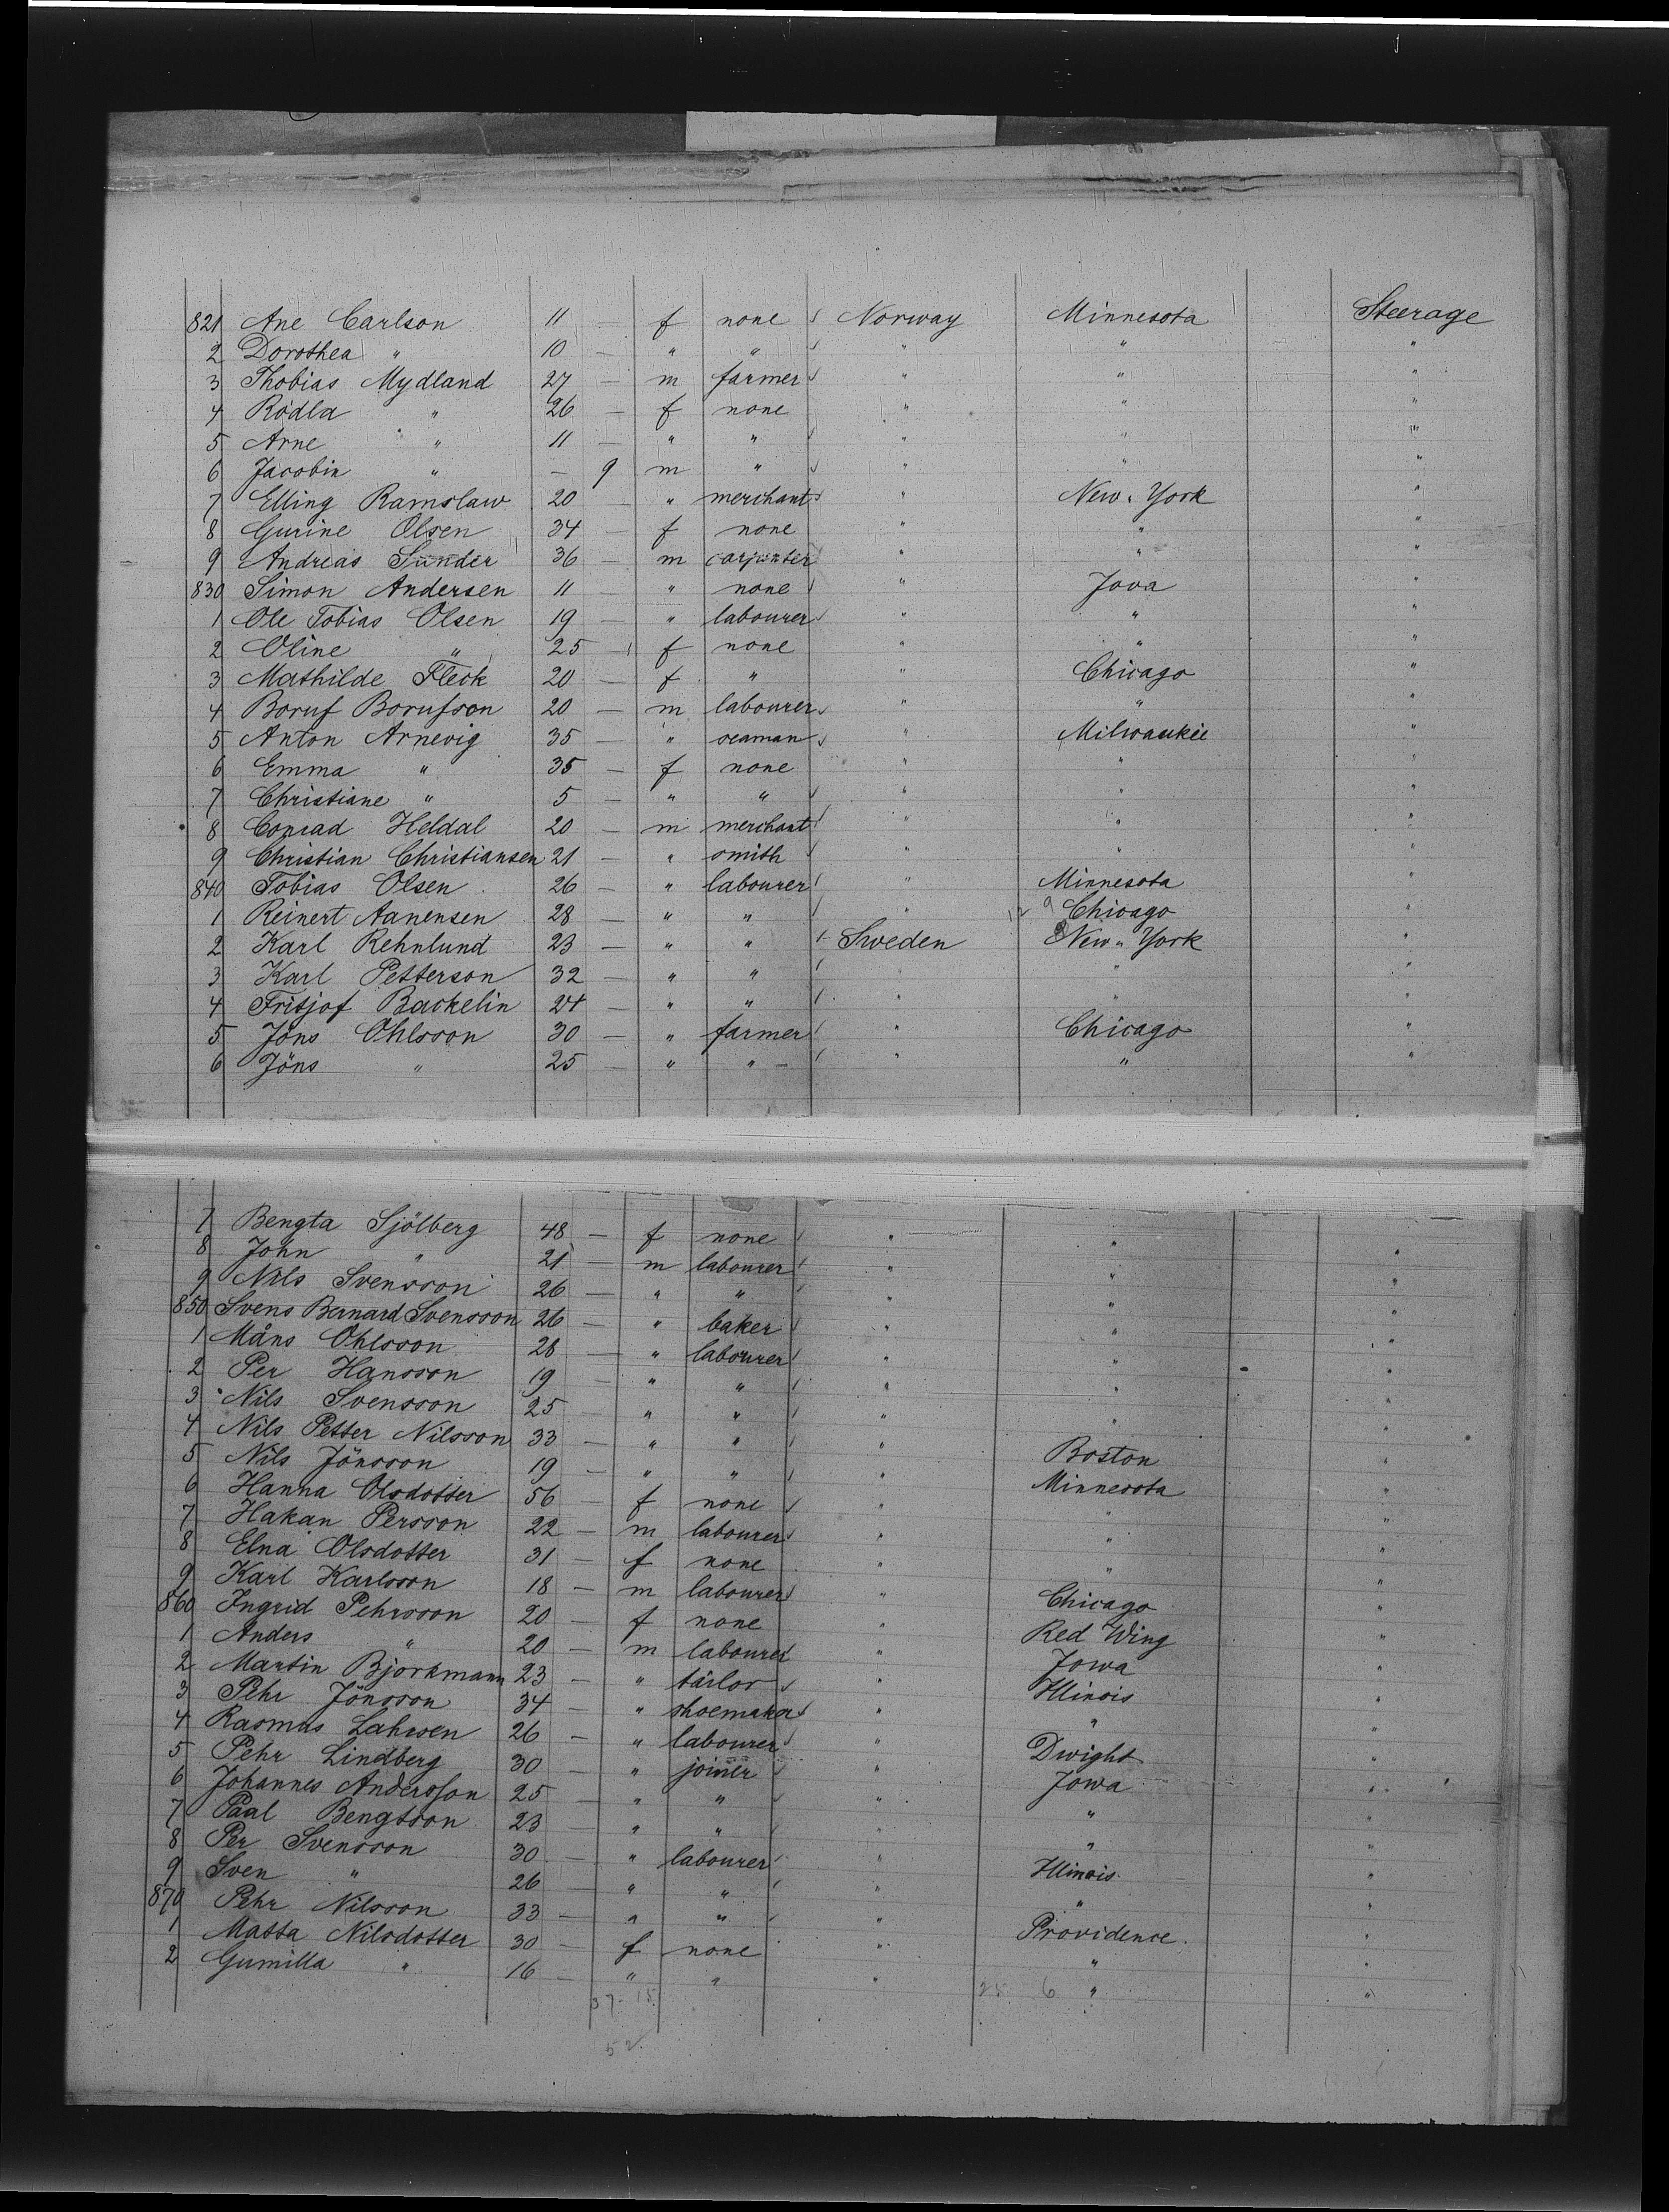 821 Ane Carlson 11 — f none Norway Minnesota Steerage
2 Dorothea " 10 — " " " " "
3 Thobias Mydland 27 — m farmer " " "
4 Rödla " 26 — f none " " "
5 Arne " 11 — " " " " "
6 Jacobin " — 9 m " " " "
7 Elling Ramslaw 20 — " merchant " New-York "
8 Gurine Olsen 34 — f none " " "
9 Andreas Sunder 36 — m carpenter " " "
830 Simon Andersen 11 — " none " Jova "
1 Ole Tobias Olsen 19 — " labourer " " "
2 Oline " 25 — f none " " "
3 Mathilde Fleck 20 — f " " Chicago "
4 Boruf Borufson 20 — m labourer " " "
5 Anton Arnevig 35 — " seaman " Milwaukie "
6 Emma " 35 — f none " " "
7 Christiane " 5 — " " " " "
8 Conrad Heldal 20 — m merchant " " "
9 Christian Christiansen 21 — " smith " " "
840 Tobias Olsen 26 — " labourer " Minnesota "
1 Reinert Aanensen 28 — " " " Chicago "
2 Karl Rehnlund 23 — " " Sweden New-York "
3 Karl Petterson 32 — " " " " "
4 Fritjof Backelin 24 — " " " " "
5 Jöns Ohlsson 30 — " farmer " Chicago "
6 Jöns " 25 — " " — " " "
7 Bengta Sjölberg 48 — f none " " "
8 John " 21 — m labourer " " "
9 Nils Svensson 26 — " " " " "
850 Svens Bernard Svensson 26 — " baker " " "
1 Måns Ohlsson 28 — " labourer " " "
2 Per Hansson 19 — " " " " "
3 Nils Svensson 25 — " " " " "
4 Nils Petter Nilsson 33 — " " " " "
5 Nils Jönsson 19 — " " " Boston "
6 Hanna Olsdotter 56 — f none " Minnesota "
7 Hakan Persson 22 — m labourer " " "
8 Elna Olsdotter 31 — f none " " "
9 Karl Karlsson 18 — m labourer " " "
860 Ingrid Pehrsson 20 — f none " Chicago "
1 Anders " 20 — m labourer " Red Wing "
2 Martin Bjorkmann 23 — " tailor " Jowa "
3 Pehr Jönsson 34 — " shoemaker " Illinois "
4 Rasmus Lahrsen 26 — " labourer " " "
5 Pehr Lindberg 30 — " joiner " Dwight "
6 Johannes Andersson 25 — " " " Jowa "
7 Paal Bengtson 23 — " " " " "
8 Per Svensson 30 — " labourer " " "
9 Sven " 26 — " " " Illinois "
870 Pehr Nilsson 33 — " " " " "
1 Matta Nilsdotter 30 — f none " Providence "
2 Gumilla " 16 — " " " " "
37-15 25 6
52